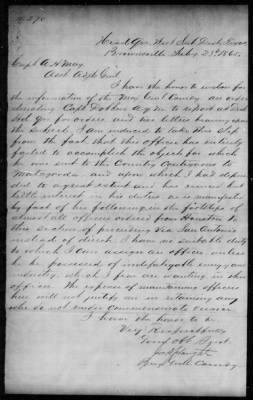 Head Qrs West Sub Dist Texas
Brownsville Feby 23d 1865.
Capt
Asst Adjt Genl
I have the honor to
the information of the Maj Genl Comdg an order
directing Capt
for orders and two letters bearing upon
the subject, I am induced to take this step
from the fact that this officer has entirely
failed to accomplish the object for which
he was sent to the Country Contiguous to
Matagorda and upon which I had depen
ded to a great extent and has evinced but
little interest in his duties as is manifested
by the fact of his following in the footsteps of
almost all officers ordered from Houston to
this section of proceeding via San Antonio
instead of direct. I have no suitable duty
to which I can assign an officer unless
he be possessed of indefatigable energy and
industry, which I fear are wanting in this
officer. The expense of maintaining officers
here will not justify me in retaining any
who do not render commensurate service
I have the honor to be
Very Respectfully
Your Obt Servt
Brig Genl Comdg